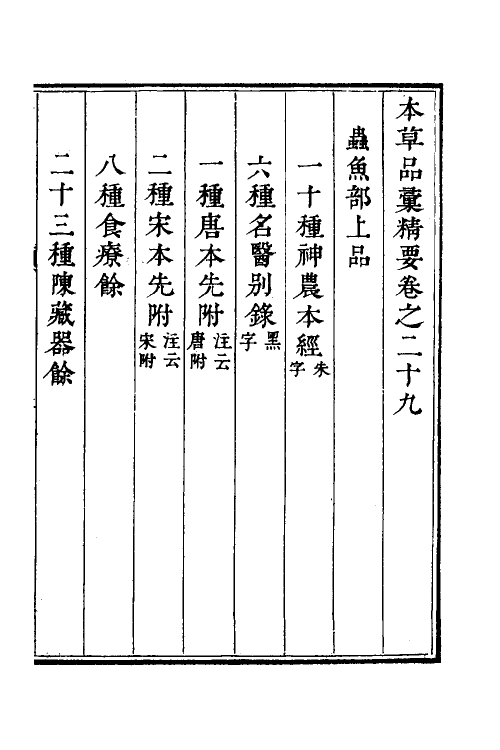 本草品彙精要卷之二十九
蟲魚部上品
一十種神農本經朱字
六種名醫别錄黑字
一種唐本先附注云唐附
二種宋本先附注云宋附
八種食療餘
二十三種陳藏器餘